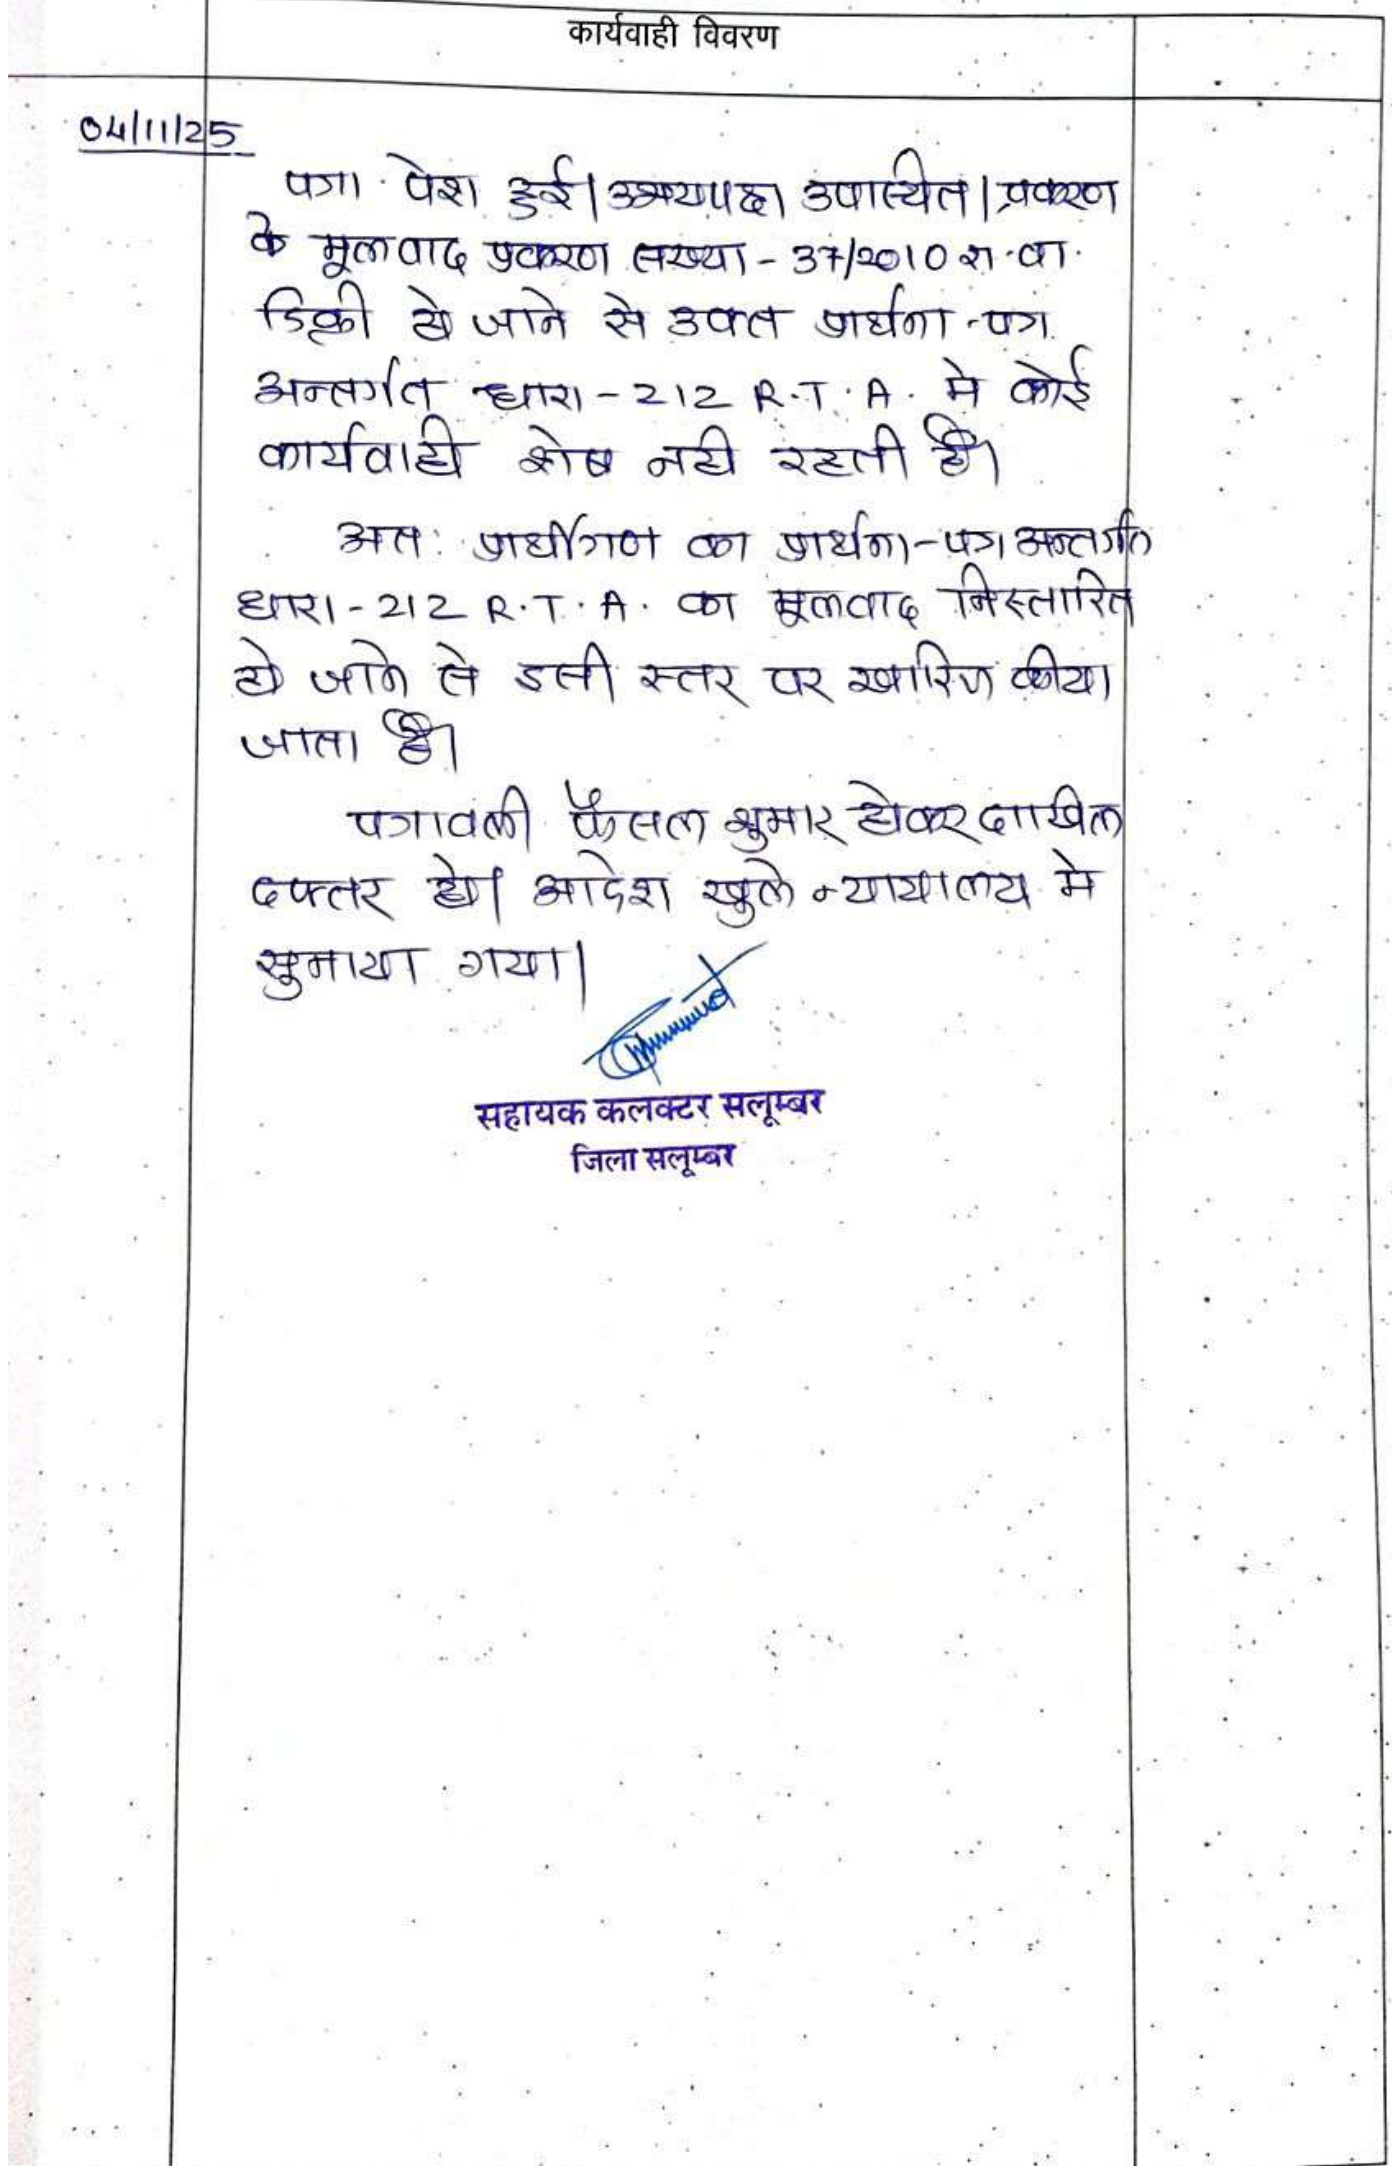 कार्यवाही विवरण
04/11/25
पत्रा पेश हुई। उभयपक्ष उपस्थित। प्रकरण
के मूलवाद प्रकरण संख्या - 37/2010 रा.वा.
डिक्री हो जाने से उक्त प्रार्थना-पत्र
अन्तर्गत धारा - 212 R.T.A. मे कोई
कार्यवाही शेष नही रहती है।
अतः प्रार्थीगण का प्रार्थना-पत्र अन्तर्गत
धारा - 212 R.T.A. का मूलवाद निस्तारित
हो जाने से इसी स्तर पर खारिज कीया
जाता है।
पत्रावली फैसल शुमार होकर दाखिल
दफ्तर हो। आदेश खुले न्यायालय मे
सुनाया गया।
सहायक कलक्टर सलूम्बर
जिला सलूम्बर